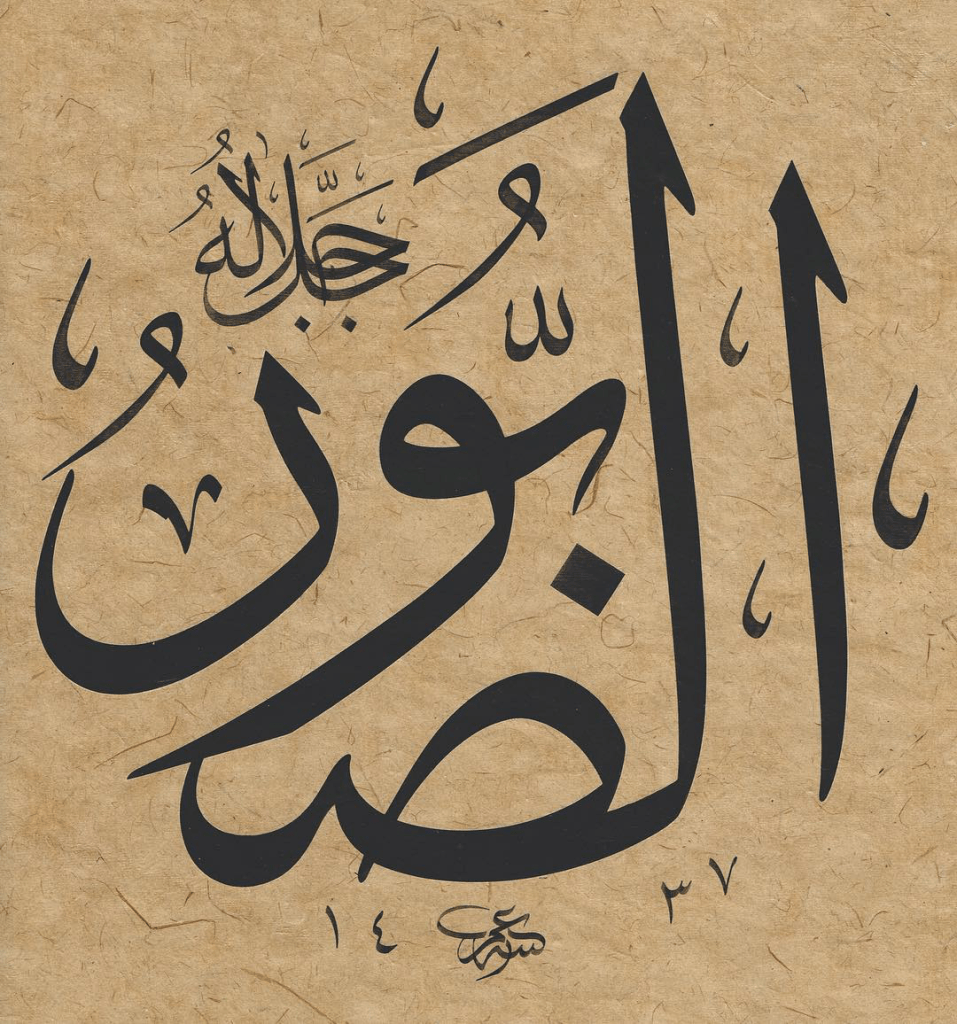 الصَّبُّورُ
جَلَّ جَلَالُهُ
١٤ ٣٧